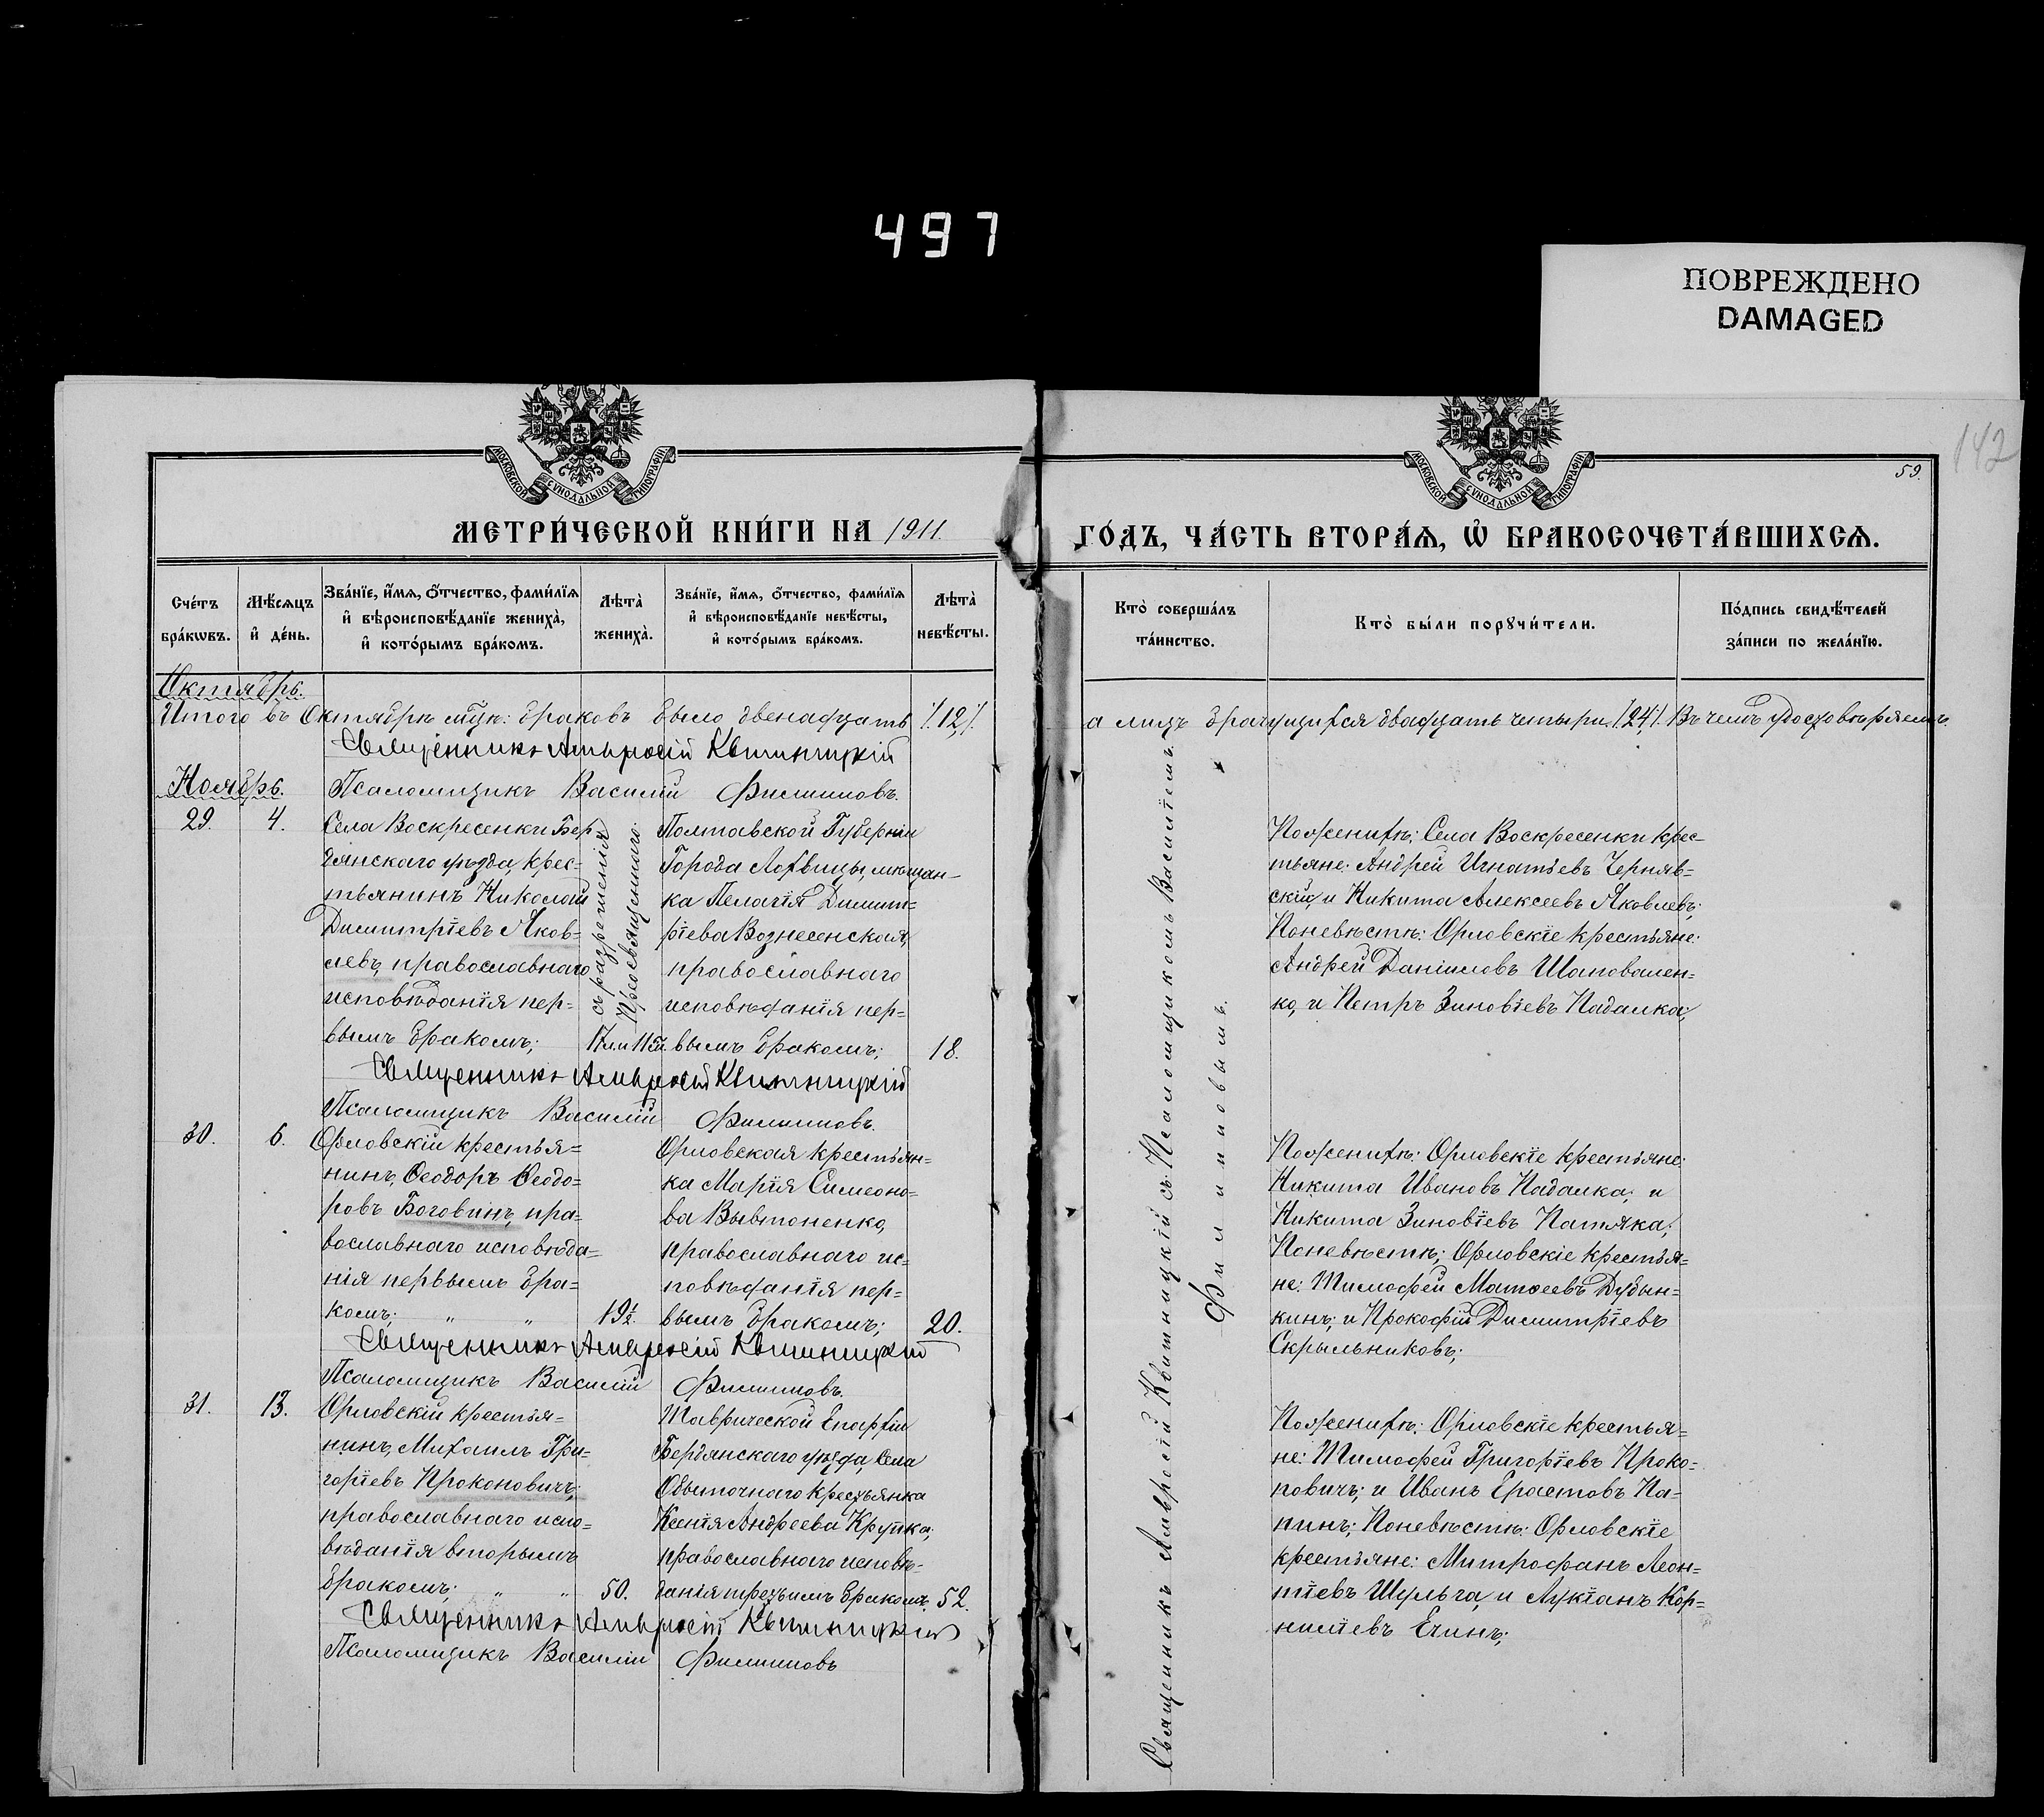 497
ПОВРЕЖДЕНО
DAMAGED
142
59.
МОСКОВСКОЙ СѴНОДАЛЬНОЙ ТИПОГРАФІИ
МОСКОВСКОЙ СѴНОДАЛЬНОЙ ТИПОГРАФІИ
МЕТРИ́ЧЕСКОЙ КНИ́ГИ НА 1911.
ГО́ДЪ, ЧА́СТЬ ВТОРА́Ѧ, Ѡ҆ БРАКОСОЧЕТА́ВШИХСѦ.
Сче́тъ бра́кѡвъ.
Мѣ́сѧцъ и҆ де́нь.
Зва́нїе, и҆́мѧ, ѻ҆́тчество, фами́лїѧ
и҆ вѣроисповѣ́данїе жениха̀,
и҆ кото́рымъ бра́комъ.
Лѣта̀ жениха̀.
Зва́нїе, и҆́мѧ, ѻ҆́тчество, фами́лїѧ
и҆ вѣроисповѣ́данїе невѣ́сты,
и҆ кото́рымъ бра́комъ.
Лѣта̀ невѣ́сты.
Кто̀ соверша́лъ та́инство.
Кто̀ бы́ли порꙋчи́тели.
По́дпись свидѣ́телей
за́писи по жела́нїю.
Октябрь.
Итого въ Октябрѣ мцѣ: браковъ было двенадцать /12/.
а лицъ брачущихся двадцать четыри /24/. Въ чемъ удостовѣряемъ.
Священникъ Амвросій Квитницкій
Ноябрь. Псаломщикъ Василій Филиповъ.
29. 4.
Села Воскресенки Бер
дянскаго уѣзда, крес=
тьянинъ Николай
Димитріевъ Яков=
левъ, православнаго
исповѣданія пер=
вымъ бракомъ;
съ разрешенія
Преосвященнаго.
17 л. и 11 м.
Полтавской Губерніи
Города Лохвицы, мѣщан=
ка Пелагія Димит=
ріева Вознесенская,
православнаго
исповѣданія пер=
вымъ бракомъ;
18.
По женихѣ: Села Воскресенки крес=
тьяне: Андрей Игнатьевъ Черняв=
скій, и Никита Алексеевъ Яковлевъ;
По невѣстѣ: Орловскіе крестьяне:
Андрей Даніиловъ Шаповален=
ко, и Петръ Зиновіевъ Падалка;
Священникъ Амвросій Квитницкій
Псаломщикъ Василій Филиповъ.
30. 6.
Орловскій крестья=
нинъ, Ѳеодоръ Ѳеодо=
ровъ Боговинъ, пра=
вославнаго исповѣда=
нія первымъ бра=
комъ; " "
19½.
Орловская крестьян=
ка Марія Симеоно=
ва Вывтоненко,
православнаго ис=
повѣданія пер=
вымъ бракомъ;
20.
По женихѣ: Орловскіе крестьяне:
Никита Ивановъ Падалка; и
Никита Зиновіевъ Патяка;
По невѣстѣ: Орловскіе крестья=
не: Тимофей Матѳеевъ Дубын=
кинъ; и Прокофій Димитріевъ
Скрыльниковъ;
Священникъ Амвросій Квитницкій
Псаломщикъ Василій Филиповъ.
31. 13.
Орловскій крестья=
нинъ, Михаилъ Гри=
горіевъ Проконовичъ;
православнаго испо=
вѣданія вторымъ
бракомъ; " "
50.
Таврической Епархіи
Бердянскаго уѣзда, Села
Обыточнаго крестьянка
Ксенія Андреева Крупка;
православнаго исповѣ=
данія третьимъ бракомъ.
52.
По женихѣ: Орловскіе крестья=
не: Тимофей Григоріевъ Проко=
повичъ; и Иванъ Ерастовъ Па=
пинъ; По невѣстѣ: Орловскіе
крестьяне: Митрофанъ Леон=
тіевъ Шульга, и Лукіанъ Кор=
ниліевъ Ечинъ;
Священникъ Амвросій Квитницкій
Псаломщикъ Василій Филиповъ
Священникъ Амвросій Квитницкій съ Псаломщикомъ Василіемъ
Филиповымъ.